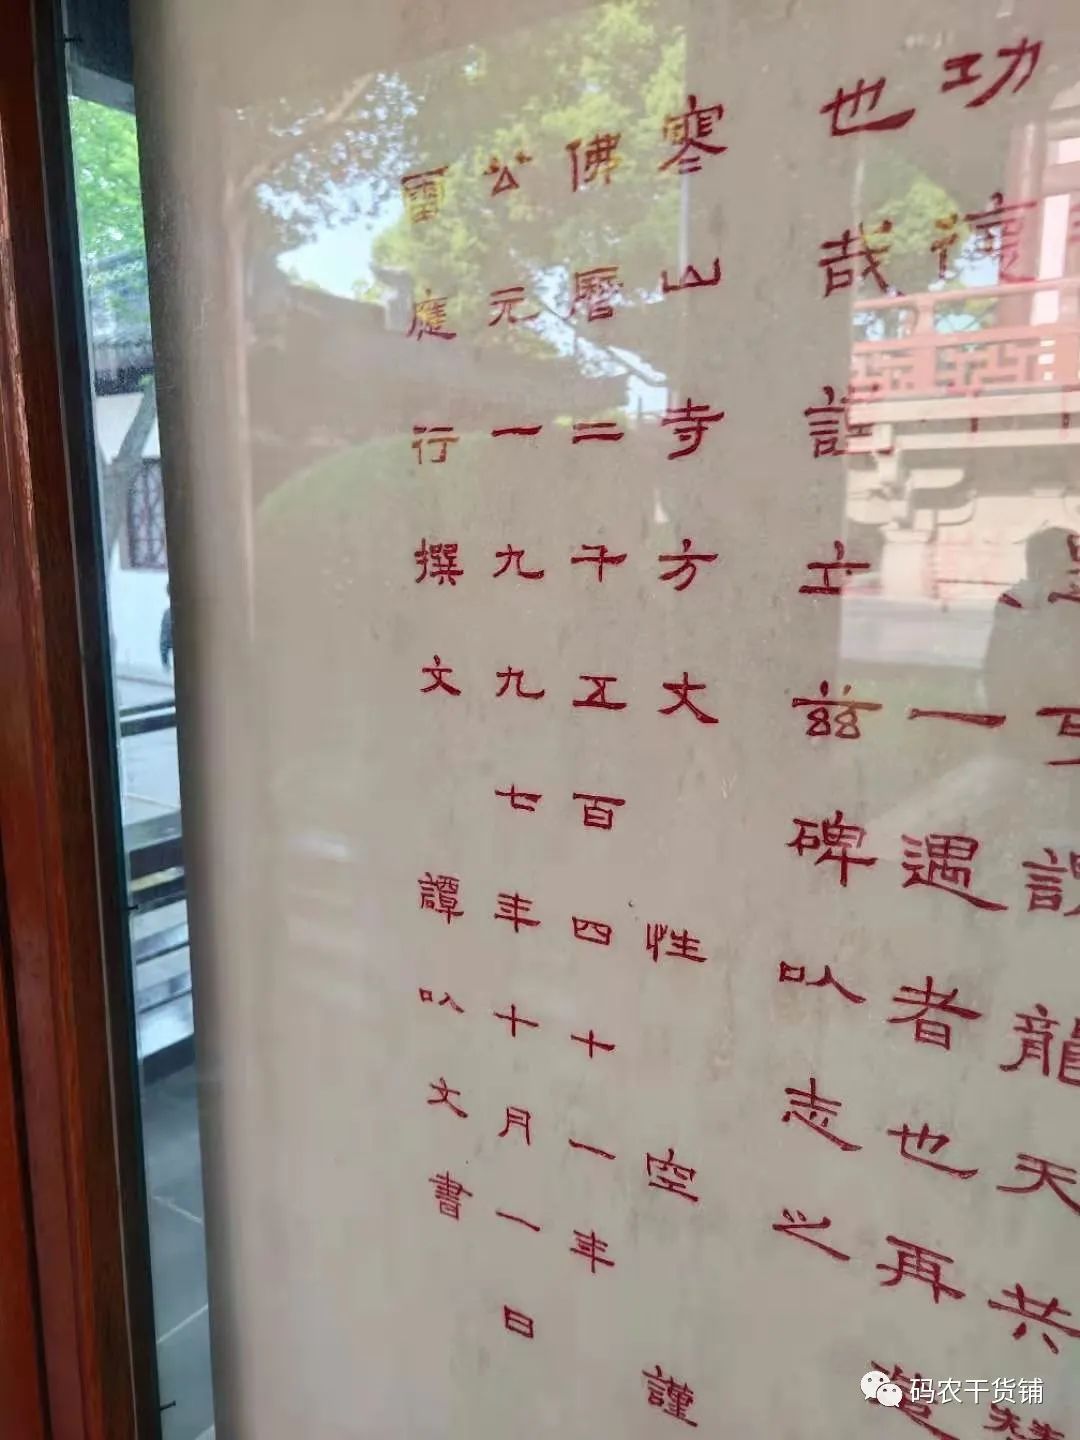 可謂龍天共
功德一遇者也再造
也哉立兹碑以志之
寒山寺方丈 性 空 謹
佛曆二千五百四十一年
公元一九九七年十月一日
雷應行撰文 譚以文書
码农干货铺